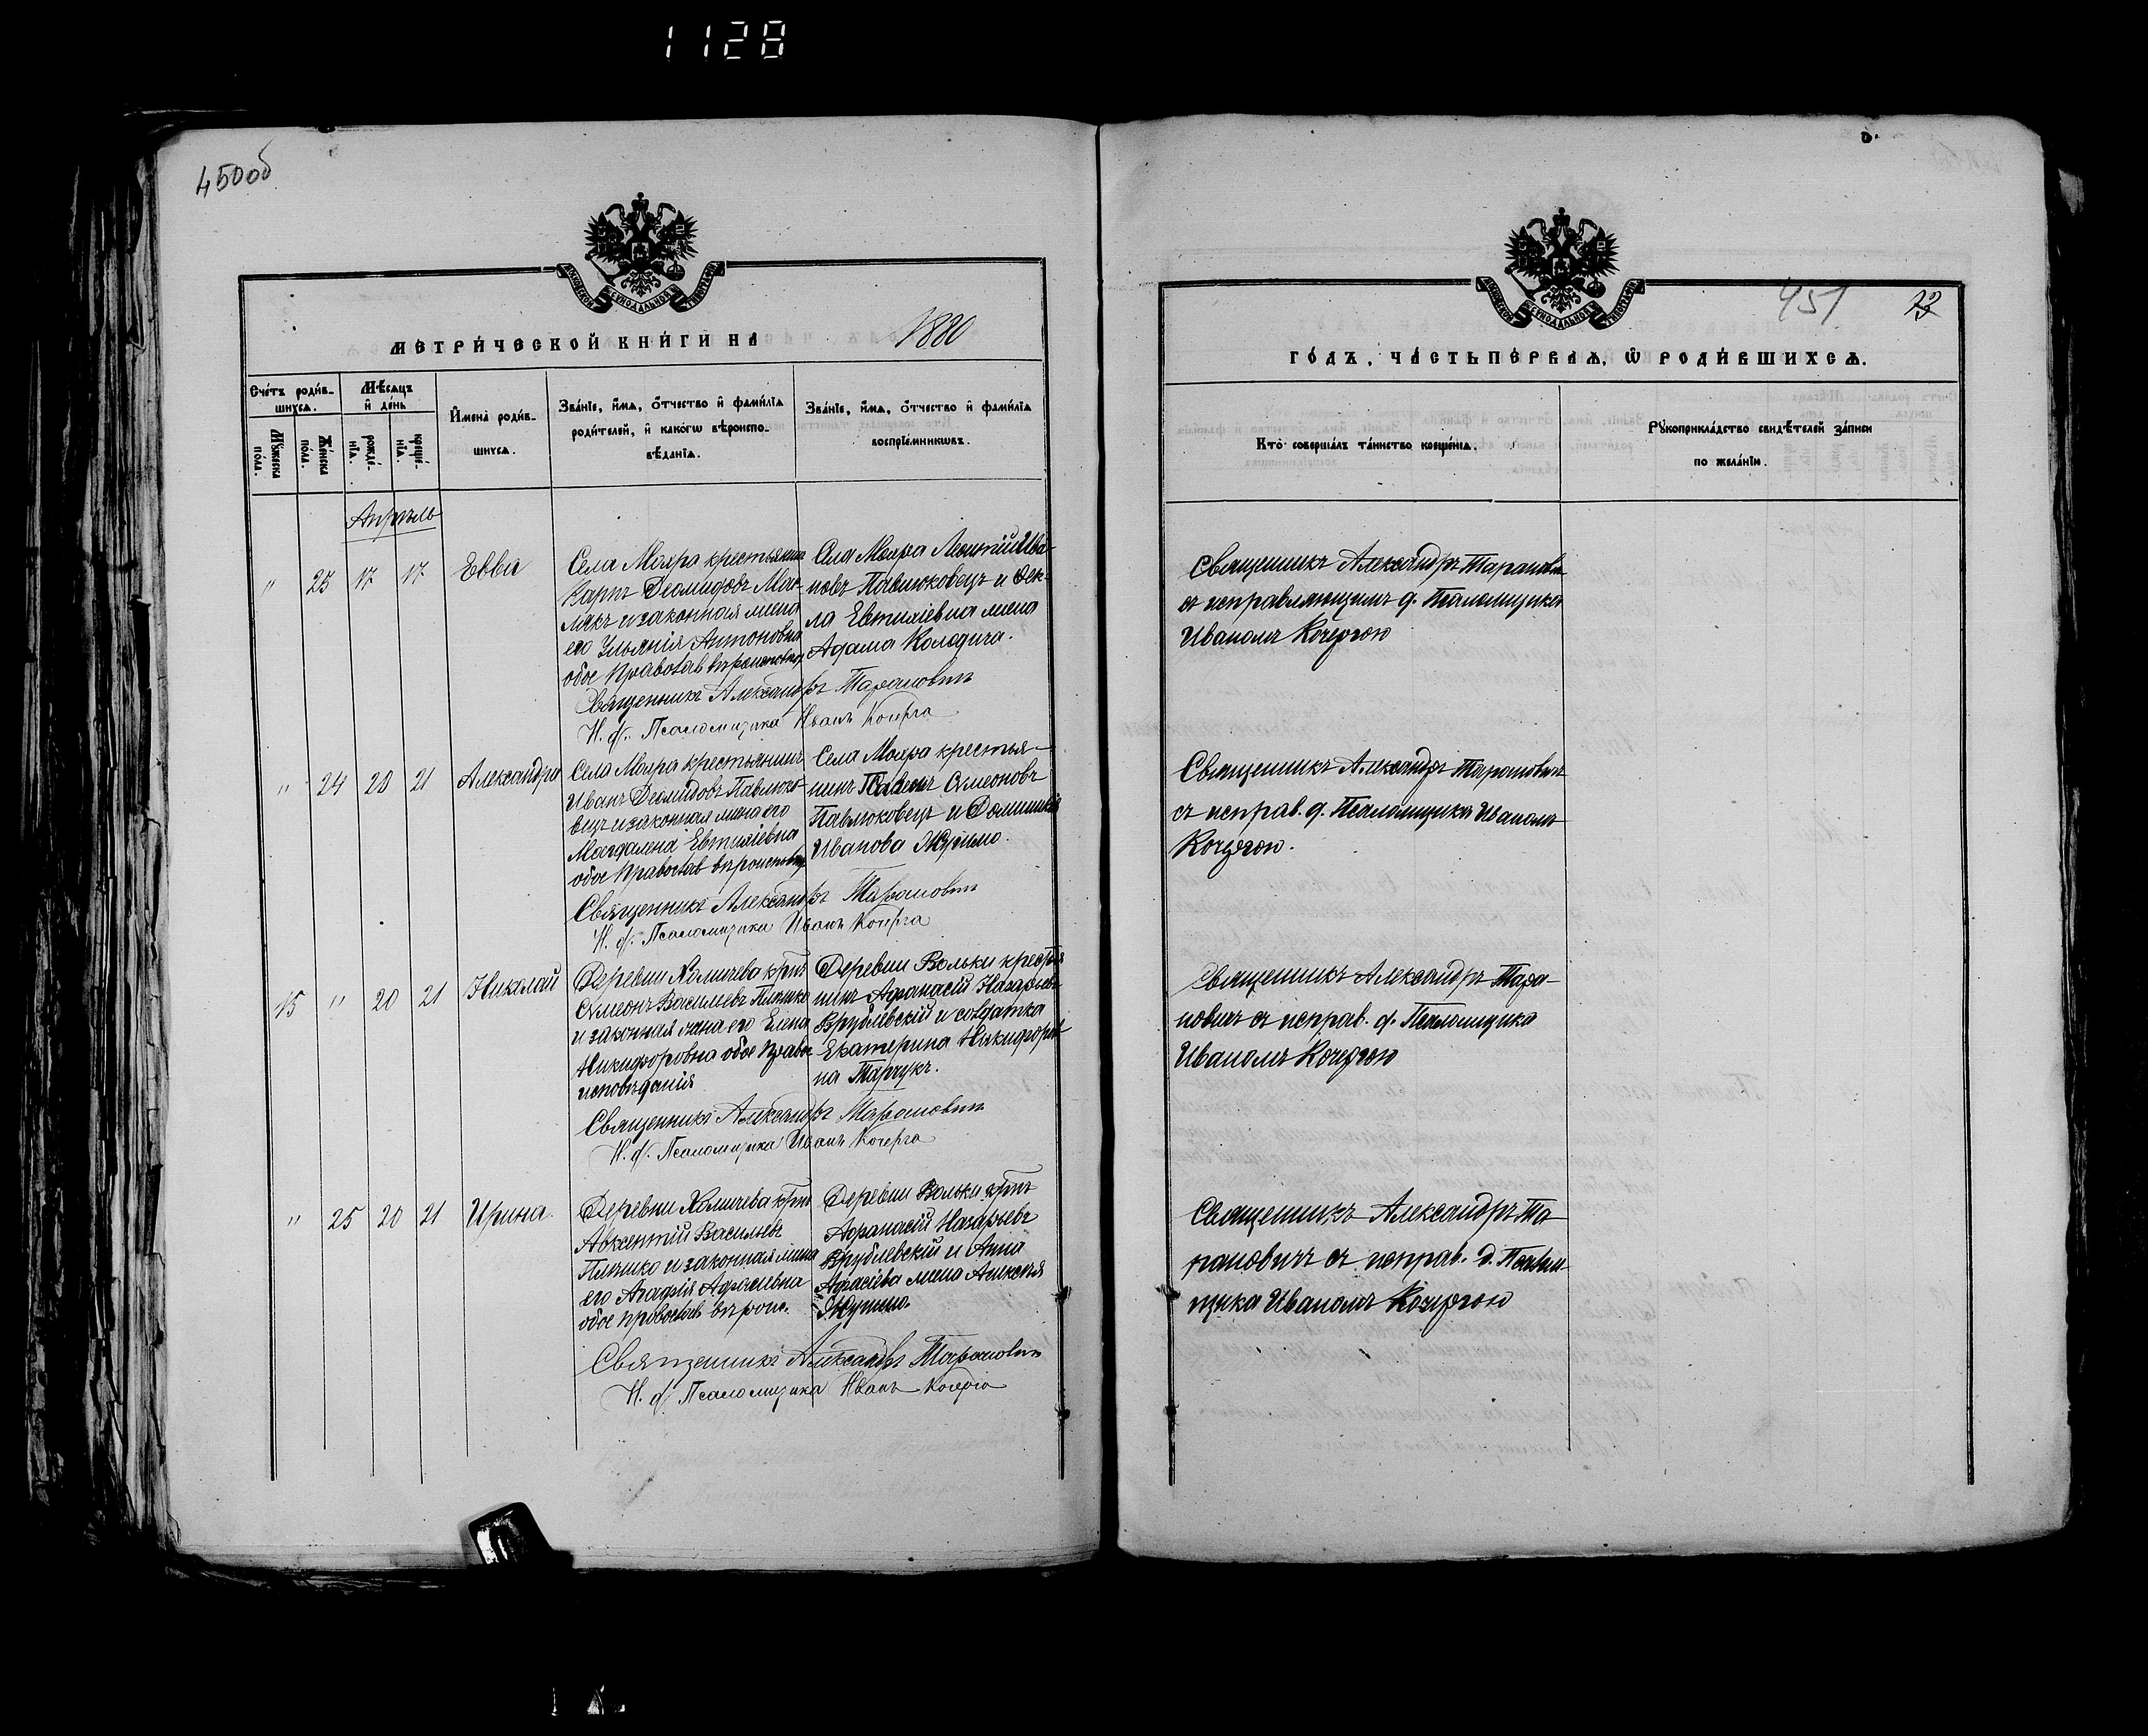 1128
450об
МОСКОВСКОЙ СѴНОДАЛЬНОЙ ТИПОГРАФІИ
МЕТРИ́ЧЕСКОЙ КНИ́ГИ НА 1880
Счетъ роди́в-
шихсѧ.
Мѣсѧцъ
и҆ де́нь
Мꙋжеска
по́ла.
Же́нска
по́ла.
рожде́-
нїѧ.
креще́-
нїѧ.
И҆мена̀ роди́в-
шихсѧ.
Зва́нїе, и҆́мѧ, ѻ҆́тчество и҆ фами́лїѧ
роди́телей, и҆ како́гѡ вѣроиспо-
вѣ́данїѧ.
Зва́нїе, и҆́мѧ, ѻ҆́тчество и҆ фами́лїѧ
воспрїе́мникѡвъ.
Апрѣль
" 23 17 17 Евва
Села Мохра крестьянинъ
Карпъ Деомидовъ
и законная жена
его Ульянія Антоновна
обое Православ вѣроисповед
Села Мохра Леонтій Ива-
новъ Павлюковецъ и Ѳек-
ла Евтихіевна жена
Адама Колодича.
Священникъ Александръ Тарановичъ
И. д. Псаломщика Иванъ Кочерга
" 24 20 21 Александра
Села Мохра крестьянинъ
Иванъ Деомидовъ Павлюко-
вецъ и законная жена его
Магдалена Евтихіевна
обое Православ вѣроисповед
Села Мохра крестья-
нинъ Симеоновъ
Павлюковецъ и Домникія
Иванова
Священникъ Александръ Тарановичъ
И. д. Псаломщика Иванъ Кочерга
15 " 20 21 Николай
Деревни Хомичева крнъ
Симеонъ Васильевъ
и законная жена его Елена
Никифоровна обое Правос
исповѣданія
Деревни Вольки крестья
нинъ Афанасій Назарьевъ
Врублевскій и солдатка
Екатерина Никифоров
на Тарчукъ.
Священникъ Александръ Тарановичъ
И. д. Псаломщика Иванъ Кочерга
" 25 20 21 Ирина.
Деревни Хомичева крнъ
Авксентій Васильевъ
и законная жена
его Агафія
обое православ вѣроис.
Деревни Вольки крнъ
Афанасій Назарьевъ
Врублевскій и Анна
жена Алексѣя
Священникъ Александръ Тарановичъ
И. д. Псаломщика Иванъ Кочерга
МОСКОВСКОЙ СѴНОДАЛЬНОЙ ТИПОГРАФІИ
451
ГО́ДЪ, ЧА́СТЬ ПЕ́РВАѦ, Ѡ҆ РОДИ́ВШИХСѦ.
Кто̀ соверша́лъ та́инство креще́нїѧ.
Рꙋкоприкла́дство свидѣ́телей за́писи
по жела́нїю.
Священникъ Александръ Тарановичъ
съ исправляющимъ д. Псаломщика
Иваномъ Кочергою
Священникъ Александръ Тарановичъ
съ исправ. д. Псаломщика Иваномъ
Кочергою.
Священникъ Александръ Тара-
новичъ съ исправ. д. Псаломщика
Иваномъ Кочергою
Священникъ Александръ Та-
рановичъ съ исправ. д. Псалом-
щика Иваномъ Кочергою